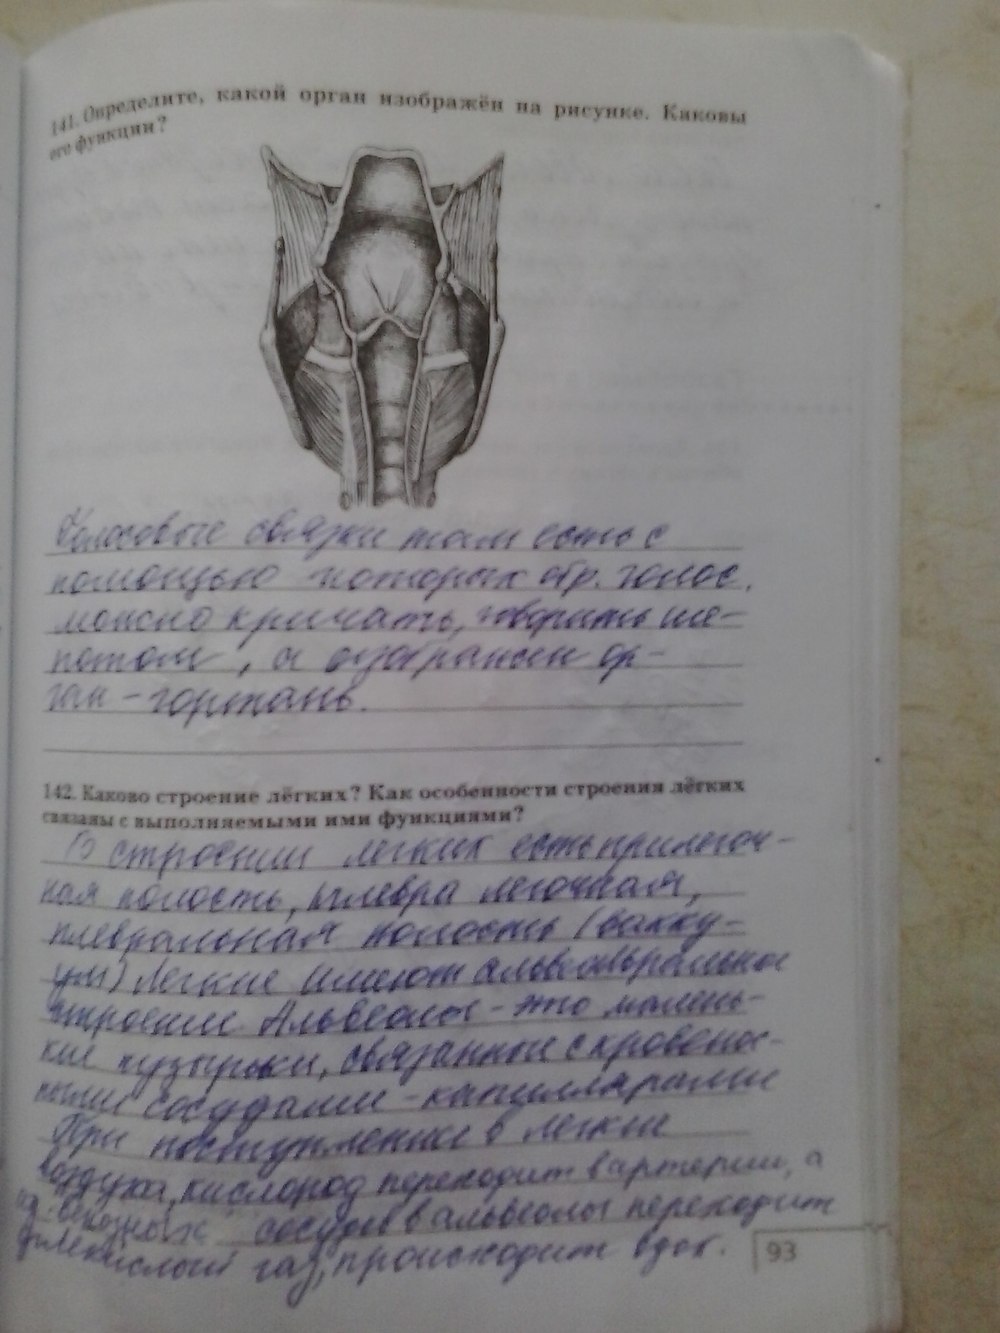 141. Определите, какой орган изображён на рисунке. Каковы
его функции?
Голосовые связки там есть с
помощью которых обр. голос.
можно кричать, говорить ше-
потом, а изображен ор-
ган - гортань.
142. Каково строение лёгких? Как особенности строения лёгких
связаны с выполняемыми ими функциями?
В строении легких есть прилегоч-
ная полость, плевра легочная,
плевральная полость (вакку-
ум) Легкие имеют альвеольральное
строение Альвеолы - это малень-
кие пузырьки, связанные с кровенос-
ными сосудами - капиллярами
При поступлении в легкие
воздуха, кислород переходит в артерии, а
из венозных сосудов в альвеолы переходит
углекислый газ, происходит вдох.
93